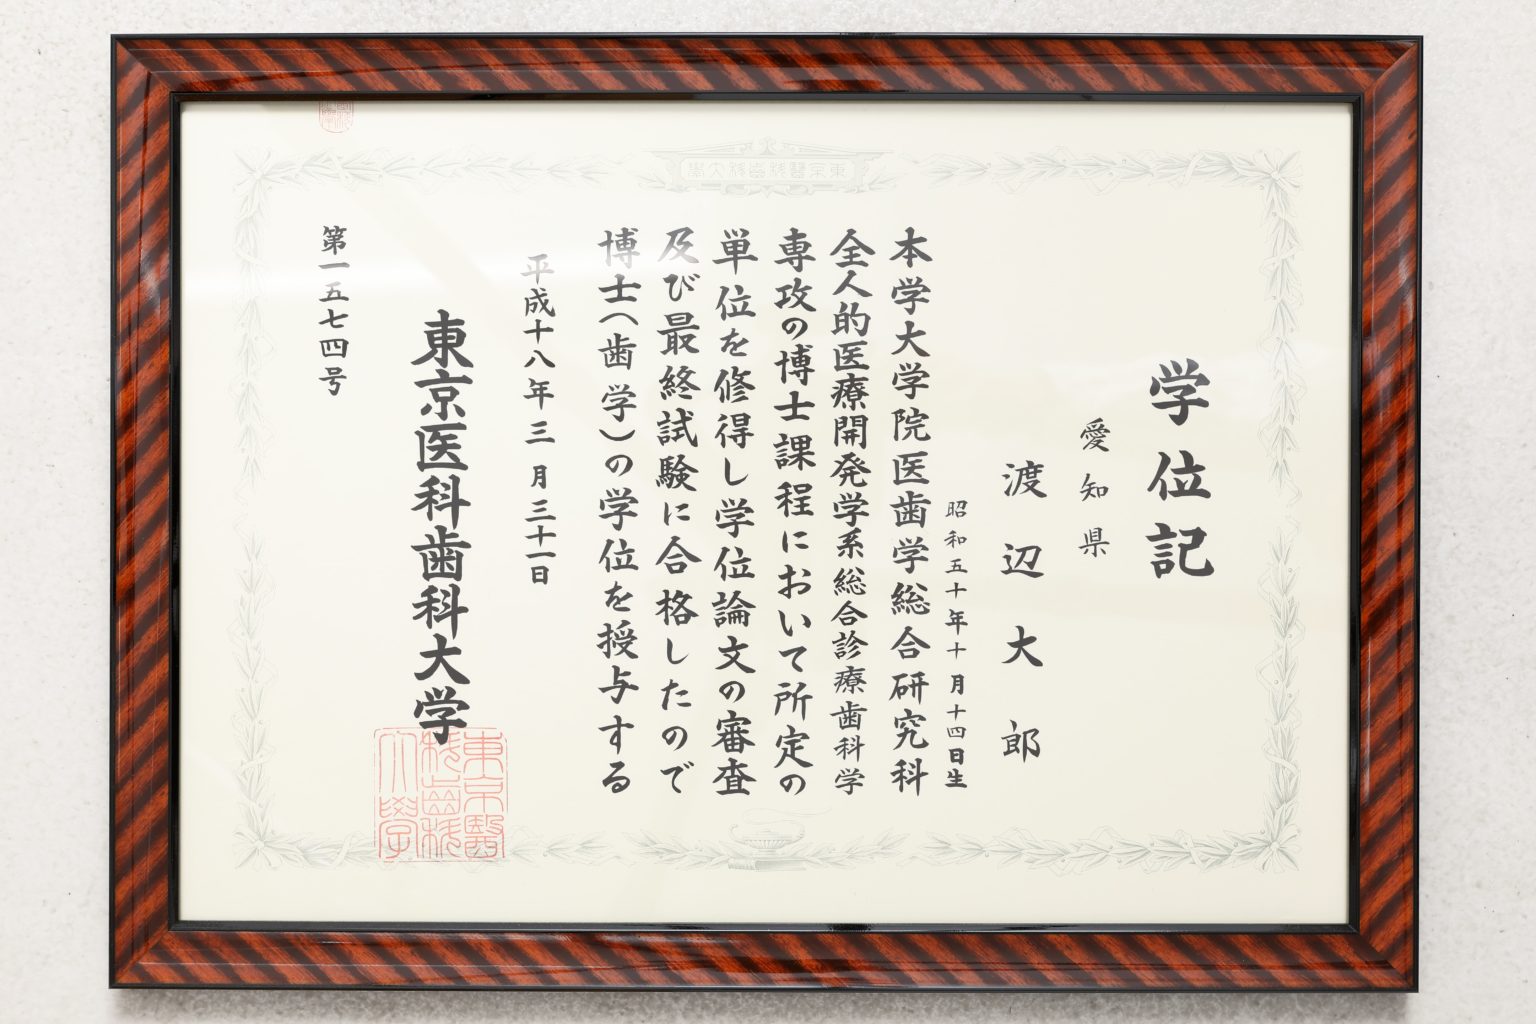 東京醫科齒科大學
学位記
愛知県
渡辺大郎
昭和五十年十月十四日生
本学大学院医歯学総合研究科
全人的医療開発学系総合診療歯科学
専攻の博士課程において所定の
単位を修得し学位論文の審査
及び最終試験に合格したので
博士(歯学)の学位を授与する
平成十八年三月三十一日
東京医科歯科大学
東京醫科齒科大學
第一五七四号